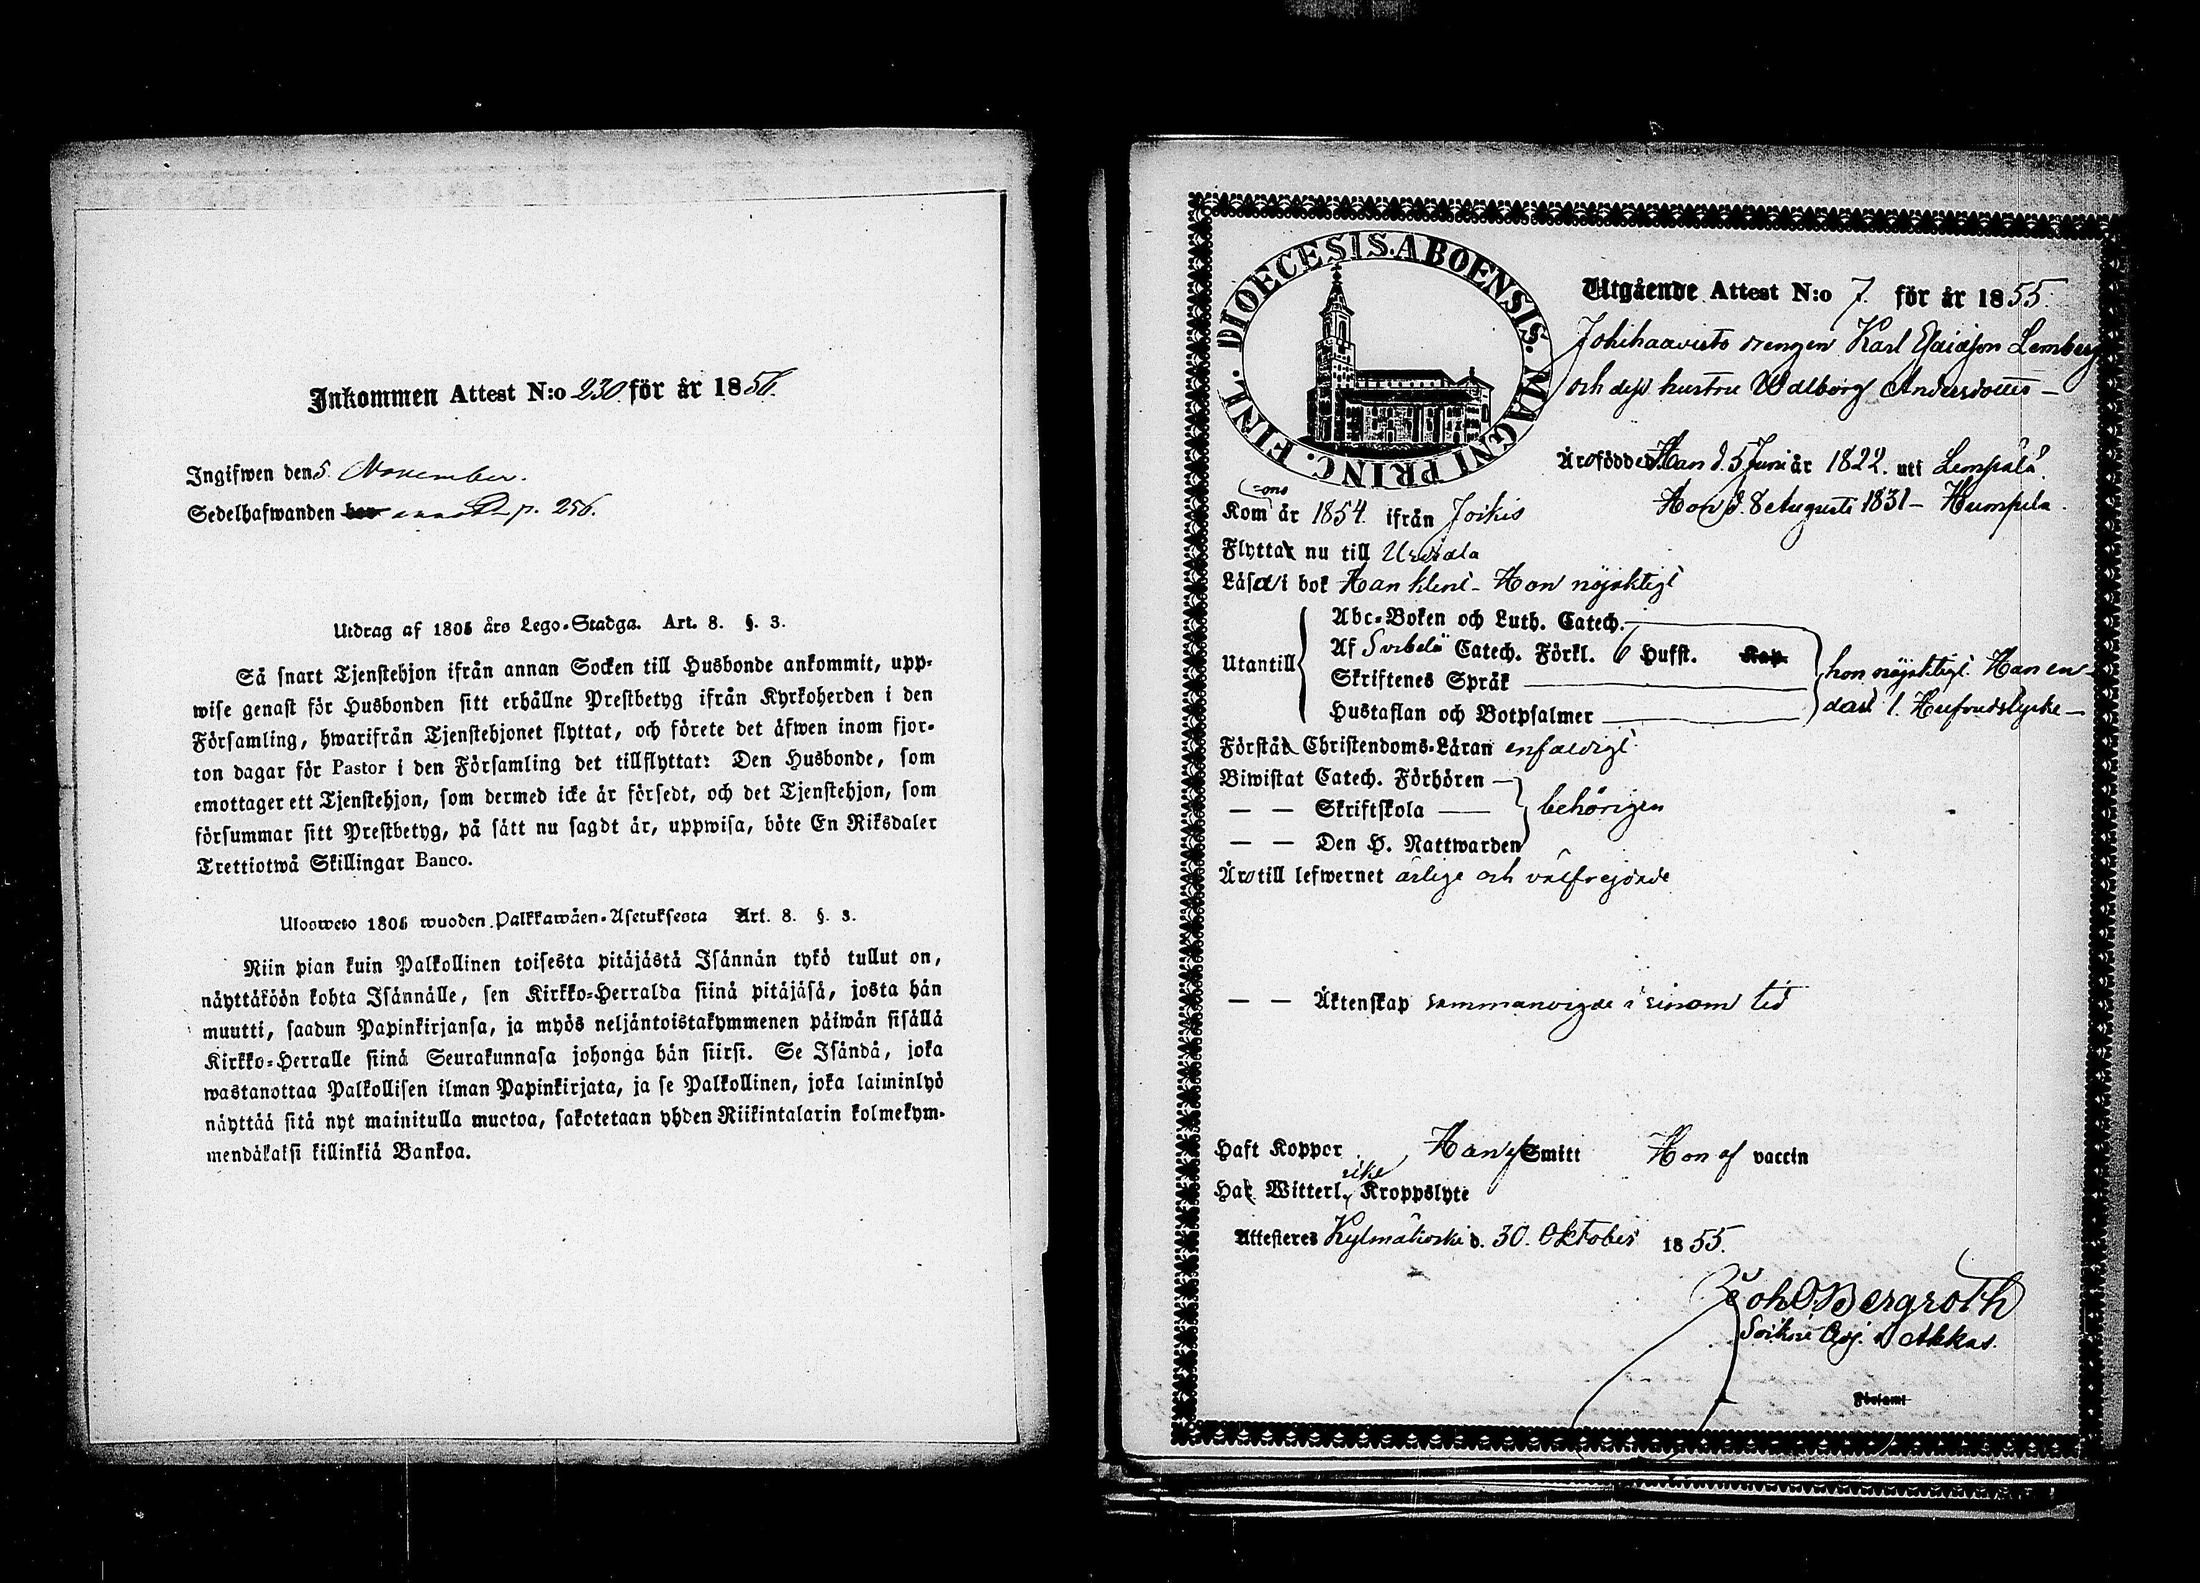 Inkommen Attest N:o 230 för år 1856.
Ingifwen den 5. November.
Sedelhafwanden p. 256.
Utdrag af 1805 års Lego-Stadga. Art. 8. §. 3.
Så snart Tjenstehjon ifrån annan Socken till Husbonde ankommit, upp-
wise genast för Husbonden sitt erhållne Prestbetyg ifrån Kyrkoherden i den
Församling, hwarifrån Tjenstehjonet flyttat, och förete det äfwen inom fjor-
ton dagar för Pastor i den Församling det tillflyttat: Den Husbonde, som
emottager ett Tjenstehjon, som dermed icke är försedt, och det Tjenstehjon, som
försummar sitt Prestbetyg, på sätt nu sagdt är, uppwisa, böte En Riksdaler
Trettiotwå Skillingar Banco.
Ulosweto 1805 wuoden Palkkawäen-Asetuksesta Art. 8. §. 3.
Niin pian kuin Palkollinen toisesta pitäjästä Isännän tykö tullut on,
näyttäköön kohta Isännälle, sen Kirkko-Herralda siinä pitäjäsä, josta hän
muutti, saadun Papinkirjansa, ja myös neljäntoistakymmenen päiwän sisällä
Kirkko-Herralle siinä Seurakunnasa johonga hän siirsi. Se Isändä, joka
wastanottaa Palkollisen ilman Papinkirjata, ja se Palkollinen, joka laiminlyö
näyttää sitä nyt mainitulla muotoa, sakotetaan yhden Riikintalarin kolmekym-
mendäkaksi killinkiä Bankoa.
DIOECESIS. ABOENSIS. MAGNI PRINC. FINL.
Utgående Attest N:o 7. för år 1855.
Johihaavisto drengen Karl Esaiasson Lemberg
och dess hustru Walborg Andersdotter –
Äro födde Han d. 5 Juni år 1822. uti Lempälä
Hon d. 8 Augusti 1831 – Humpila.
Kom år 1854. ifrån Jockis
Flytta nu till Urdiala
Läsa i bok Han klent – Hon nöjaktigt
Utantill
Abc-Boken och Luth. Catech.
Af Svebelii Catech. Förkl. 6 Hufst. Kap.
Skriftenes Språk
Hustaflan och Botpsalmer
hon nöjaktigt. Han en-
dast 1. Hufvudstycke –
Förstå Christendoms-Läran enfaldigt.
Biwistat Catech. Förhören
— — Skriftskola
— — Den H. Nattwarden
behörigen
Äro till lefwernet ärlige och välfrejdade
— — Äktenskap sammanvigde i sinom tid
Haft Koppor Han af Smitt Hon af vaccin
Ha Witterl. icke Kroppslyte
Attesteras Kylmäkoski d. 30. Oktober 1855.
Joh O Bergroth
Akkas.
Församl